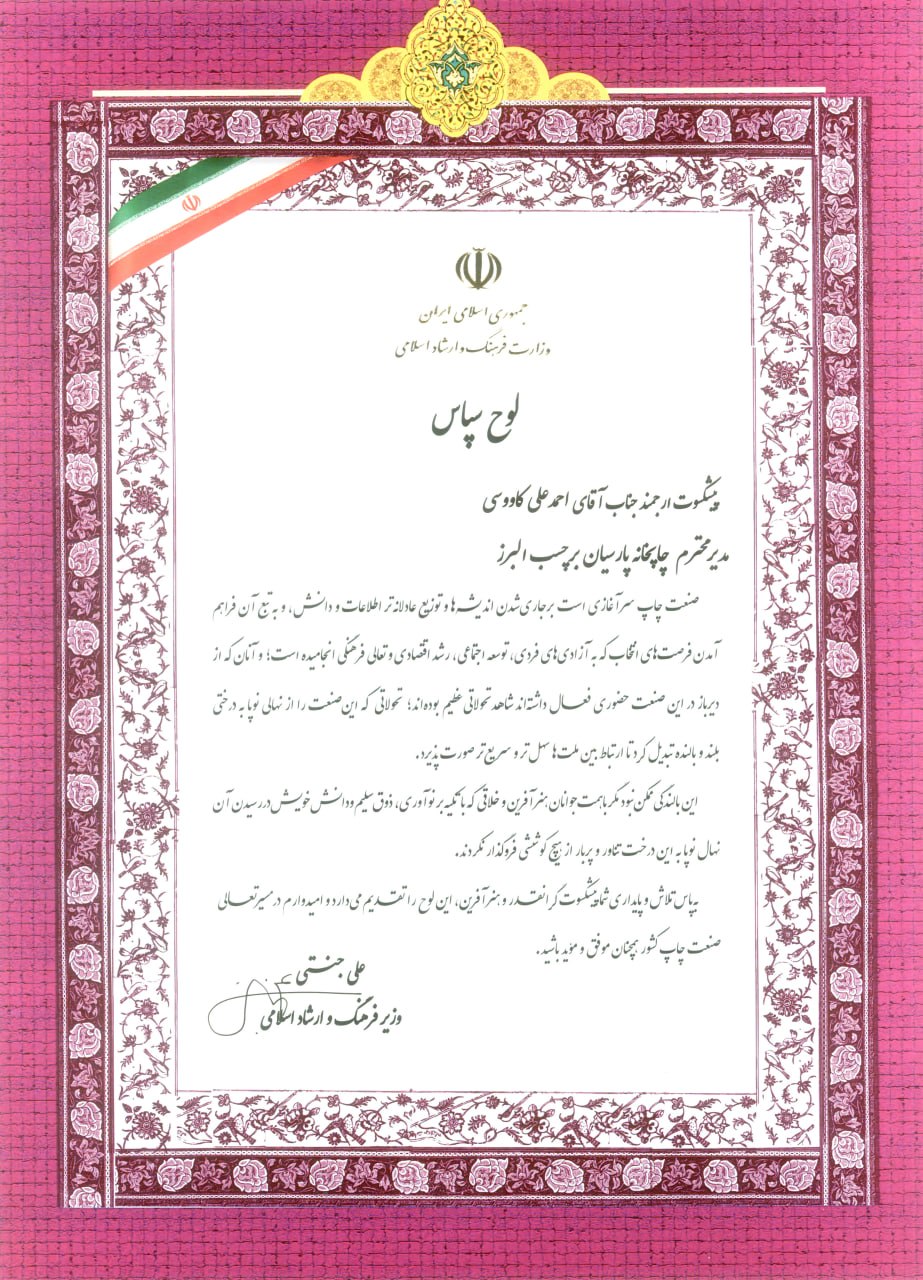 جمهوری اسلامی ایران
وزارت فرهنگ و ارشاد اسلامی
لوح سپاس
پیشکسوت ارجمند جناب آقای احمدعلی کاووسی
مدیر محترم چاپخانه پارسیان برچسب البرز
صنعت چاپ سرآغازی است بر جاری شدن اندیشه‌ها و توزیع عادلانه‌تر اطلاعات و دانش، و به تبع آن فراهم
آمدن فرصت‌های انتخاب که به آزادی‌های فردی، توسعه اجتماعی، رشد اقتصادی و تعالی فرهنگی انجامیده است؛ و آنان که از
دیرباز در این صنعت حضوری فعال داشته‌اند شاهد تحولاتی عظیم بوده‌اند؛ تحولاتی که این صنعت را از نهالی نوپا به درختی
بلند و بالنده تبدیل کرد تا ارتباط بین ملت‌ها سهل‌تر و سریع‌تر صورت پذیرد.
این بالندگی ممکن نبود مگر با همت جوانان هنرآفرین و خلاقی که با تکیه بر نوآوری، ذوق سلیم و دانش خویش در رسیدن آن
نهال نوپا به این درخت تناور و پربار از هیچ کوششی فروگذار نکردند.
به پاس تلاش و پایداری شما پیشکسوت گرانقدر و هنرآفرین، این لوح را تقدیم می‌دارد و امیدوارم در مسیر تعالی
صنعت چاپ کشور همچنان موفق و مؤید باشید.
علی جنتی
وزیر فرهنگ و ارشاد اسلامی